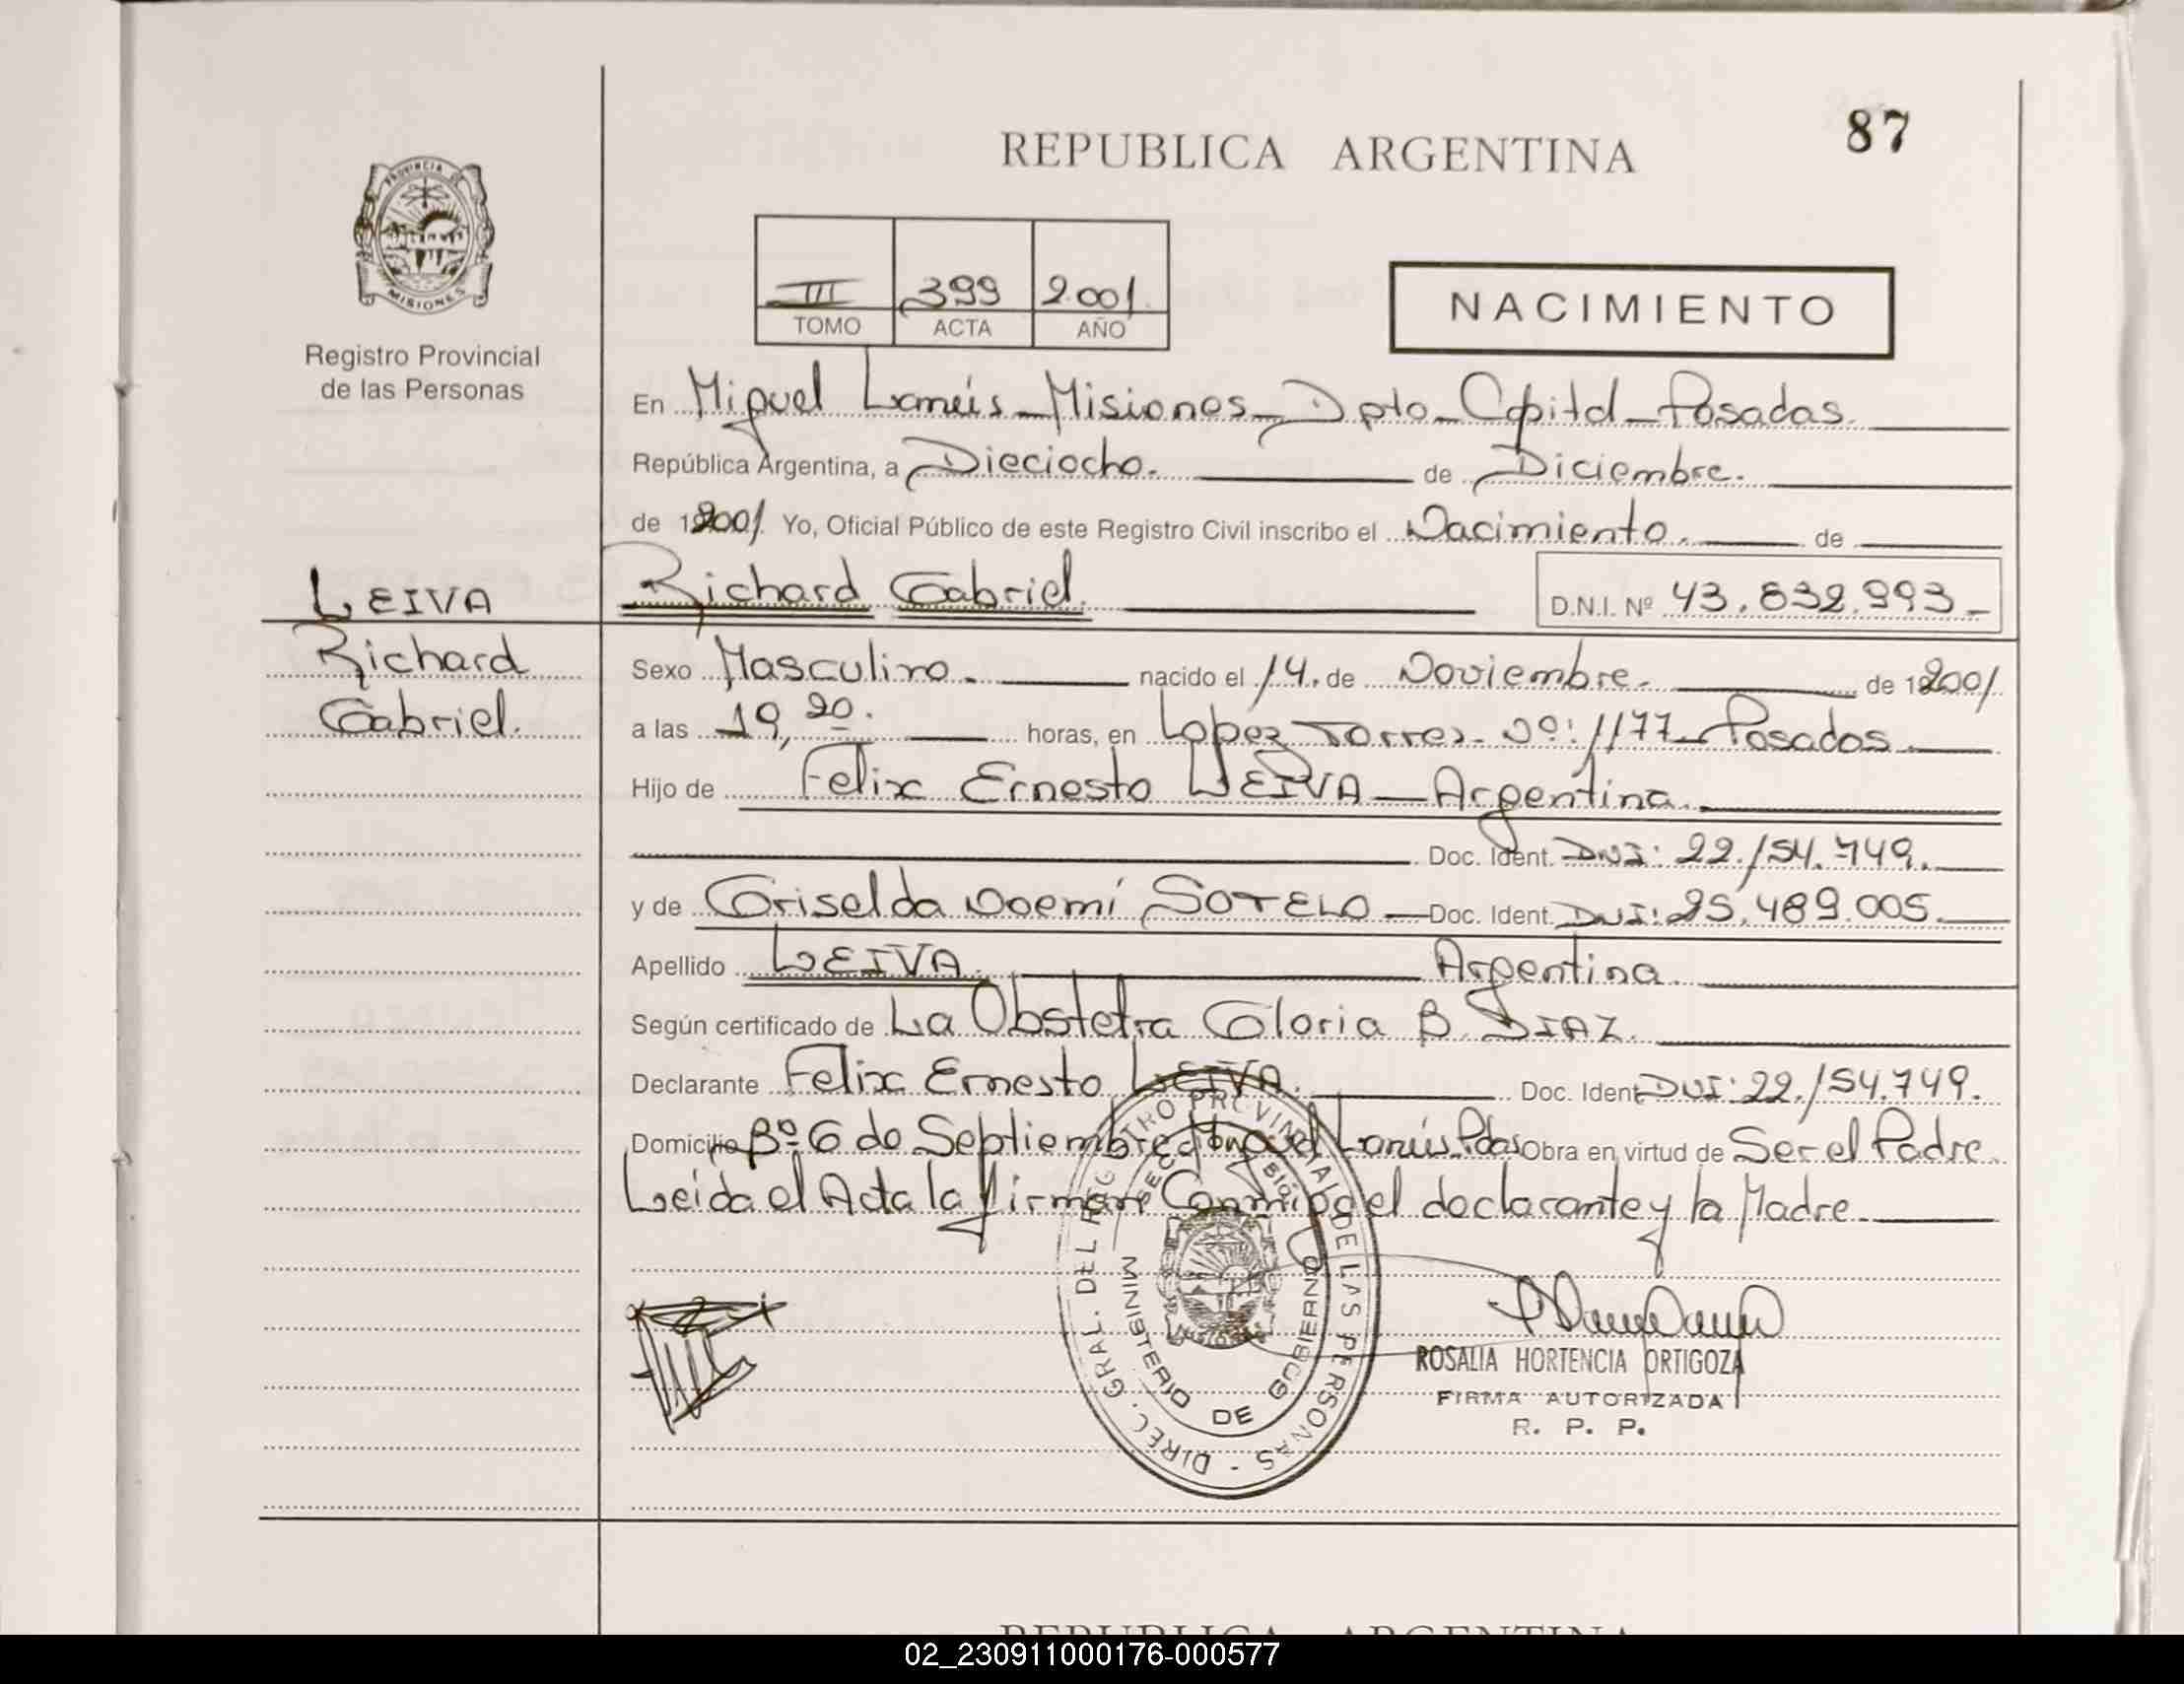 REPUBLICA ARGENTINA
87
PROVINCIA DE
MISIONES
Registro Provincial
de las Personas
III 399 2.001.
TOMO ACTA AÑO
NACIMIENTO
En Miguel Lanús - Misiones - Dpto - Capital - Posadas.
República Argentina, a Dieciocho. de Diciembre.
de 2001. Yo, Oficial Público de este Registro Civil inscribo el Nacimiento. de
LEIVA
Richard Gabriel. D.N.I. Nº 43.832.993-
Richard
Gabriel.
Sexo Masculino. nacido el 14. de Noviembre. de 2001
a las 19,20. horas, en Lopez Torres - Nº: 1177 - Posadas.
Hijo de Felix Ernesto LEIVA - Argentina.
Doc. Ident. DNI: 22.154.749.
y de Griselda Noemí SOTELO - Doc. Ident. DNI: 25.489.005.
Apellido LEIVA. Argentina.
Según certificado de La Obstetra Gloria B. DIAZ.
Declarante Felix Ernesto LEIVA. Doc. Ident. DNI: 22.154.749.
Domicilio Bº 6 de Septiembre Miguel Lanús Pdas Obra en virtud de Ser el Padre.
Leida el Acta la firman Conmigo el declarante y la Madre.
DIREC. GRAL. DEL REGISTRO PROVINCIAL DE LAS PERSONAS -
MINISTERIO DE GOBIERNO
ROSALIA HORTENCIA ORTIGOZA
FIRMA AUTORIZADA
R. P. P.
REPUBLICA ARGENTINA
02_230911000176-000577